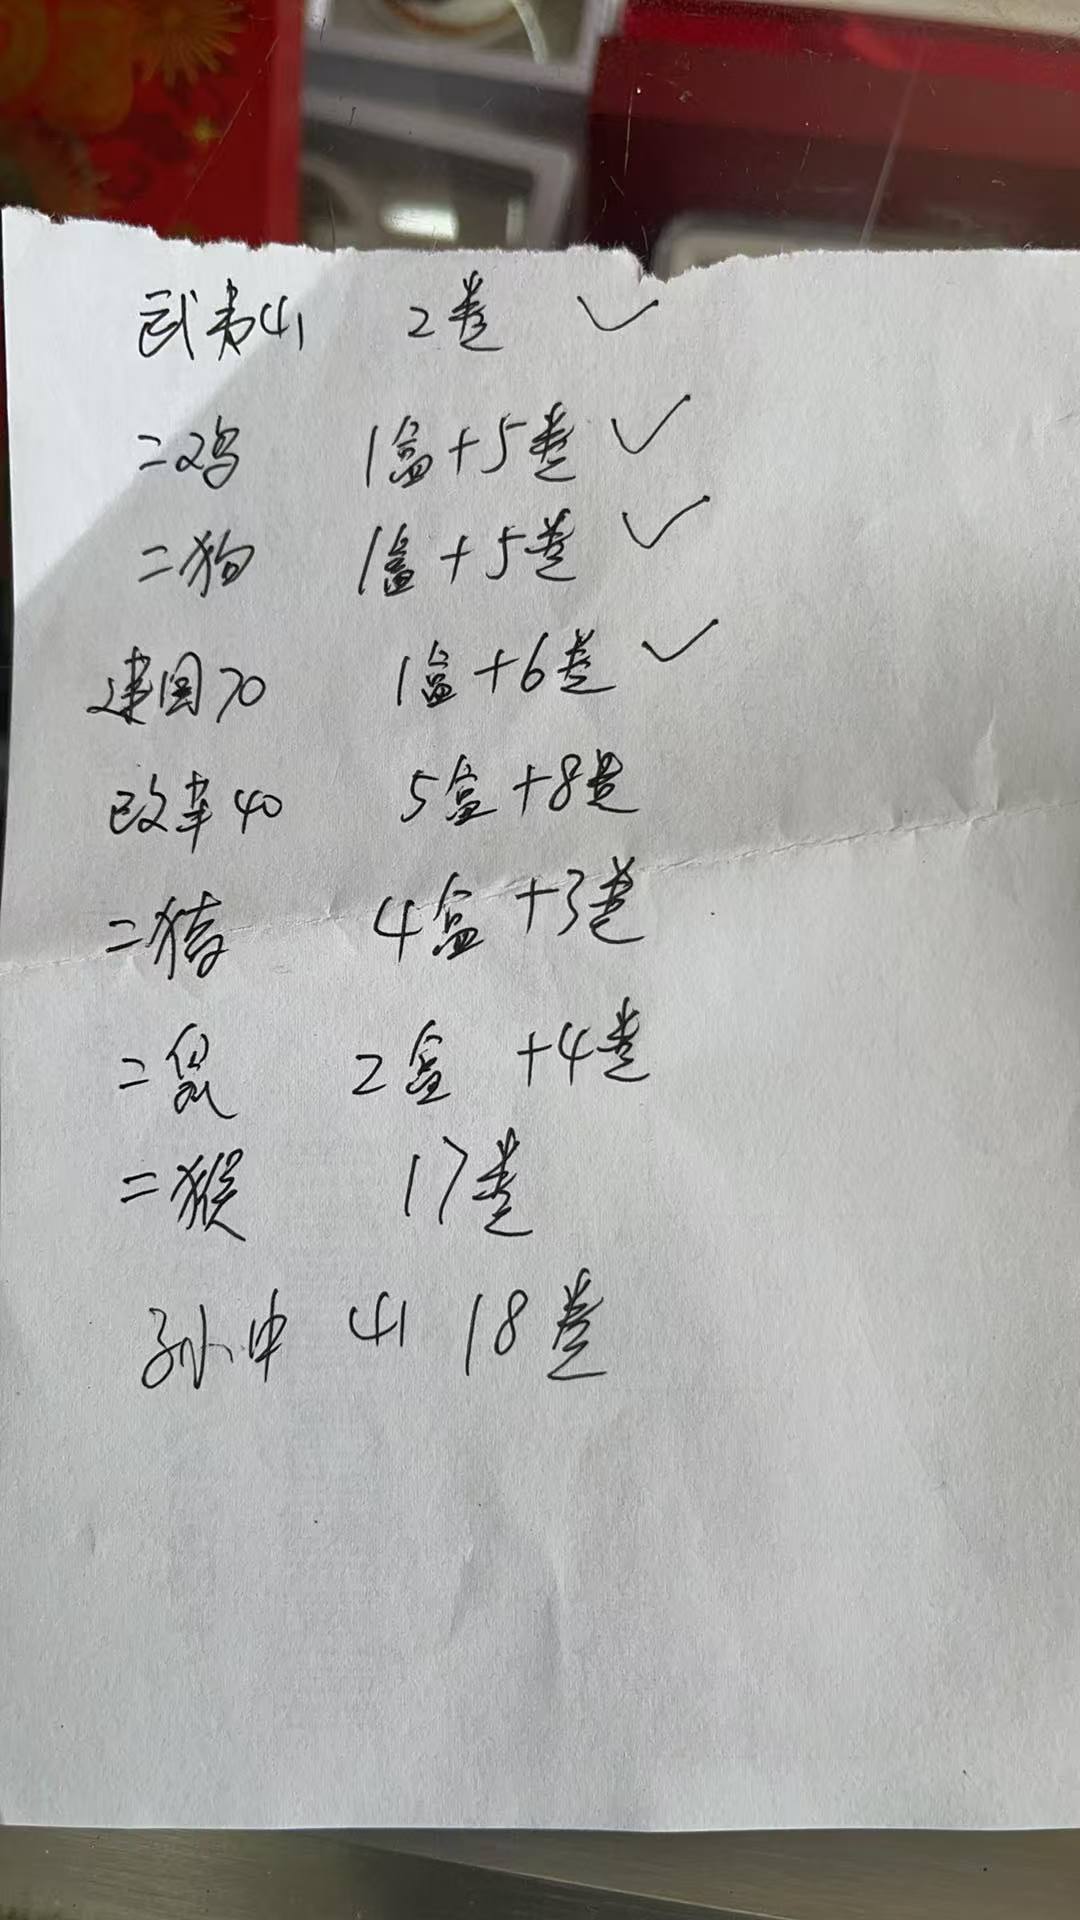 武夷41 2卷 ✓
二鸡 1盒+5卷 ✓
二狗 1盒+5卷 ✓
建国70 1盒+6卷 ✓
改革40 5盒+8卷
二猪 4盒+3卷
二鼠 2盒 +4卷
二猴 17卷
孙中 41 18卷